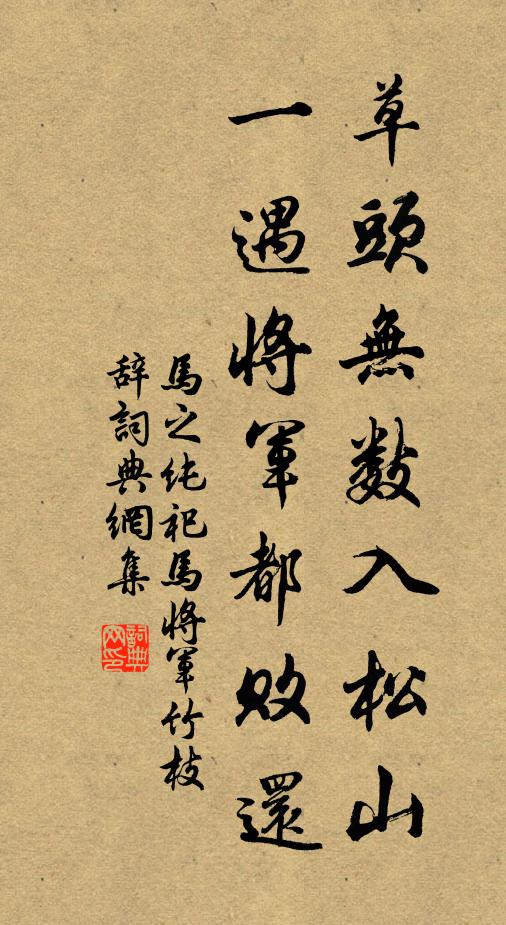 草頭無數入松山
一遇將軍都敗還
馬之純祀馬將軍竹枝
辞詞典網集
詞典网印